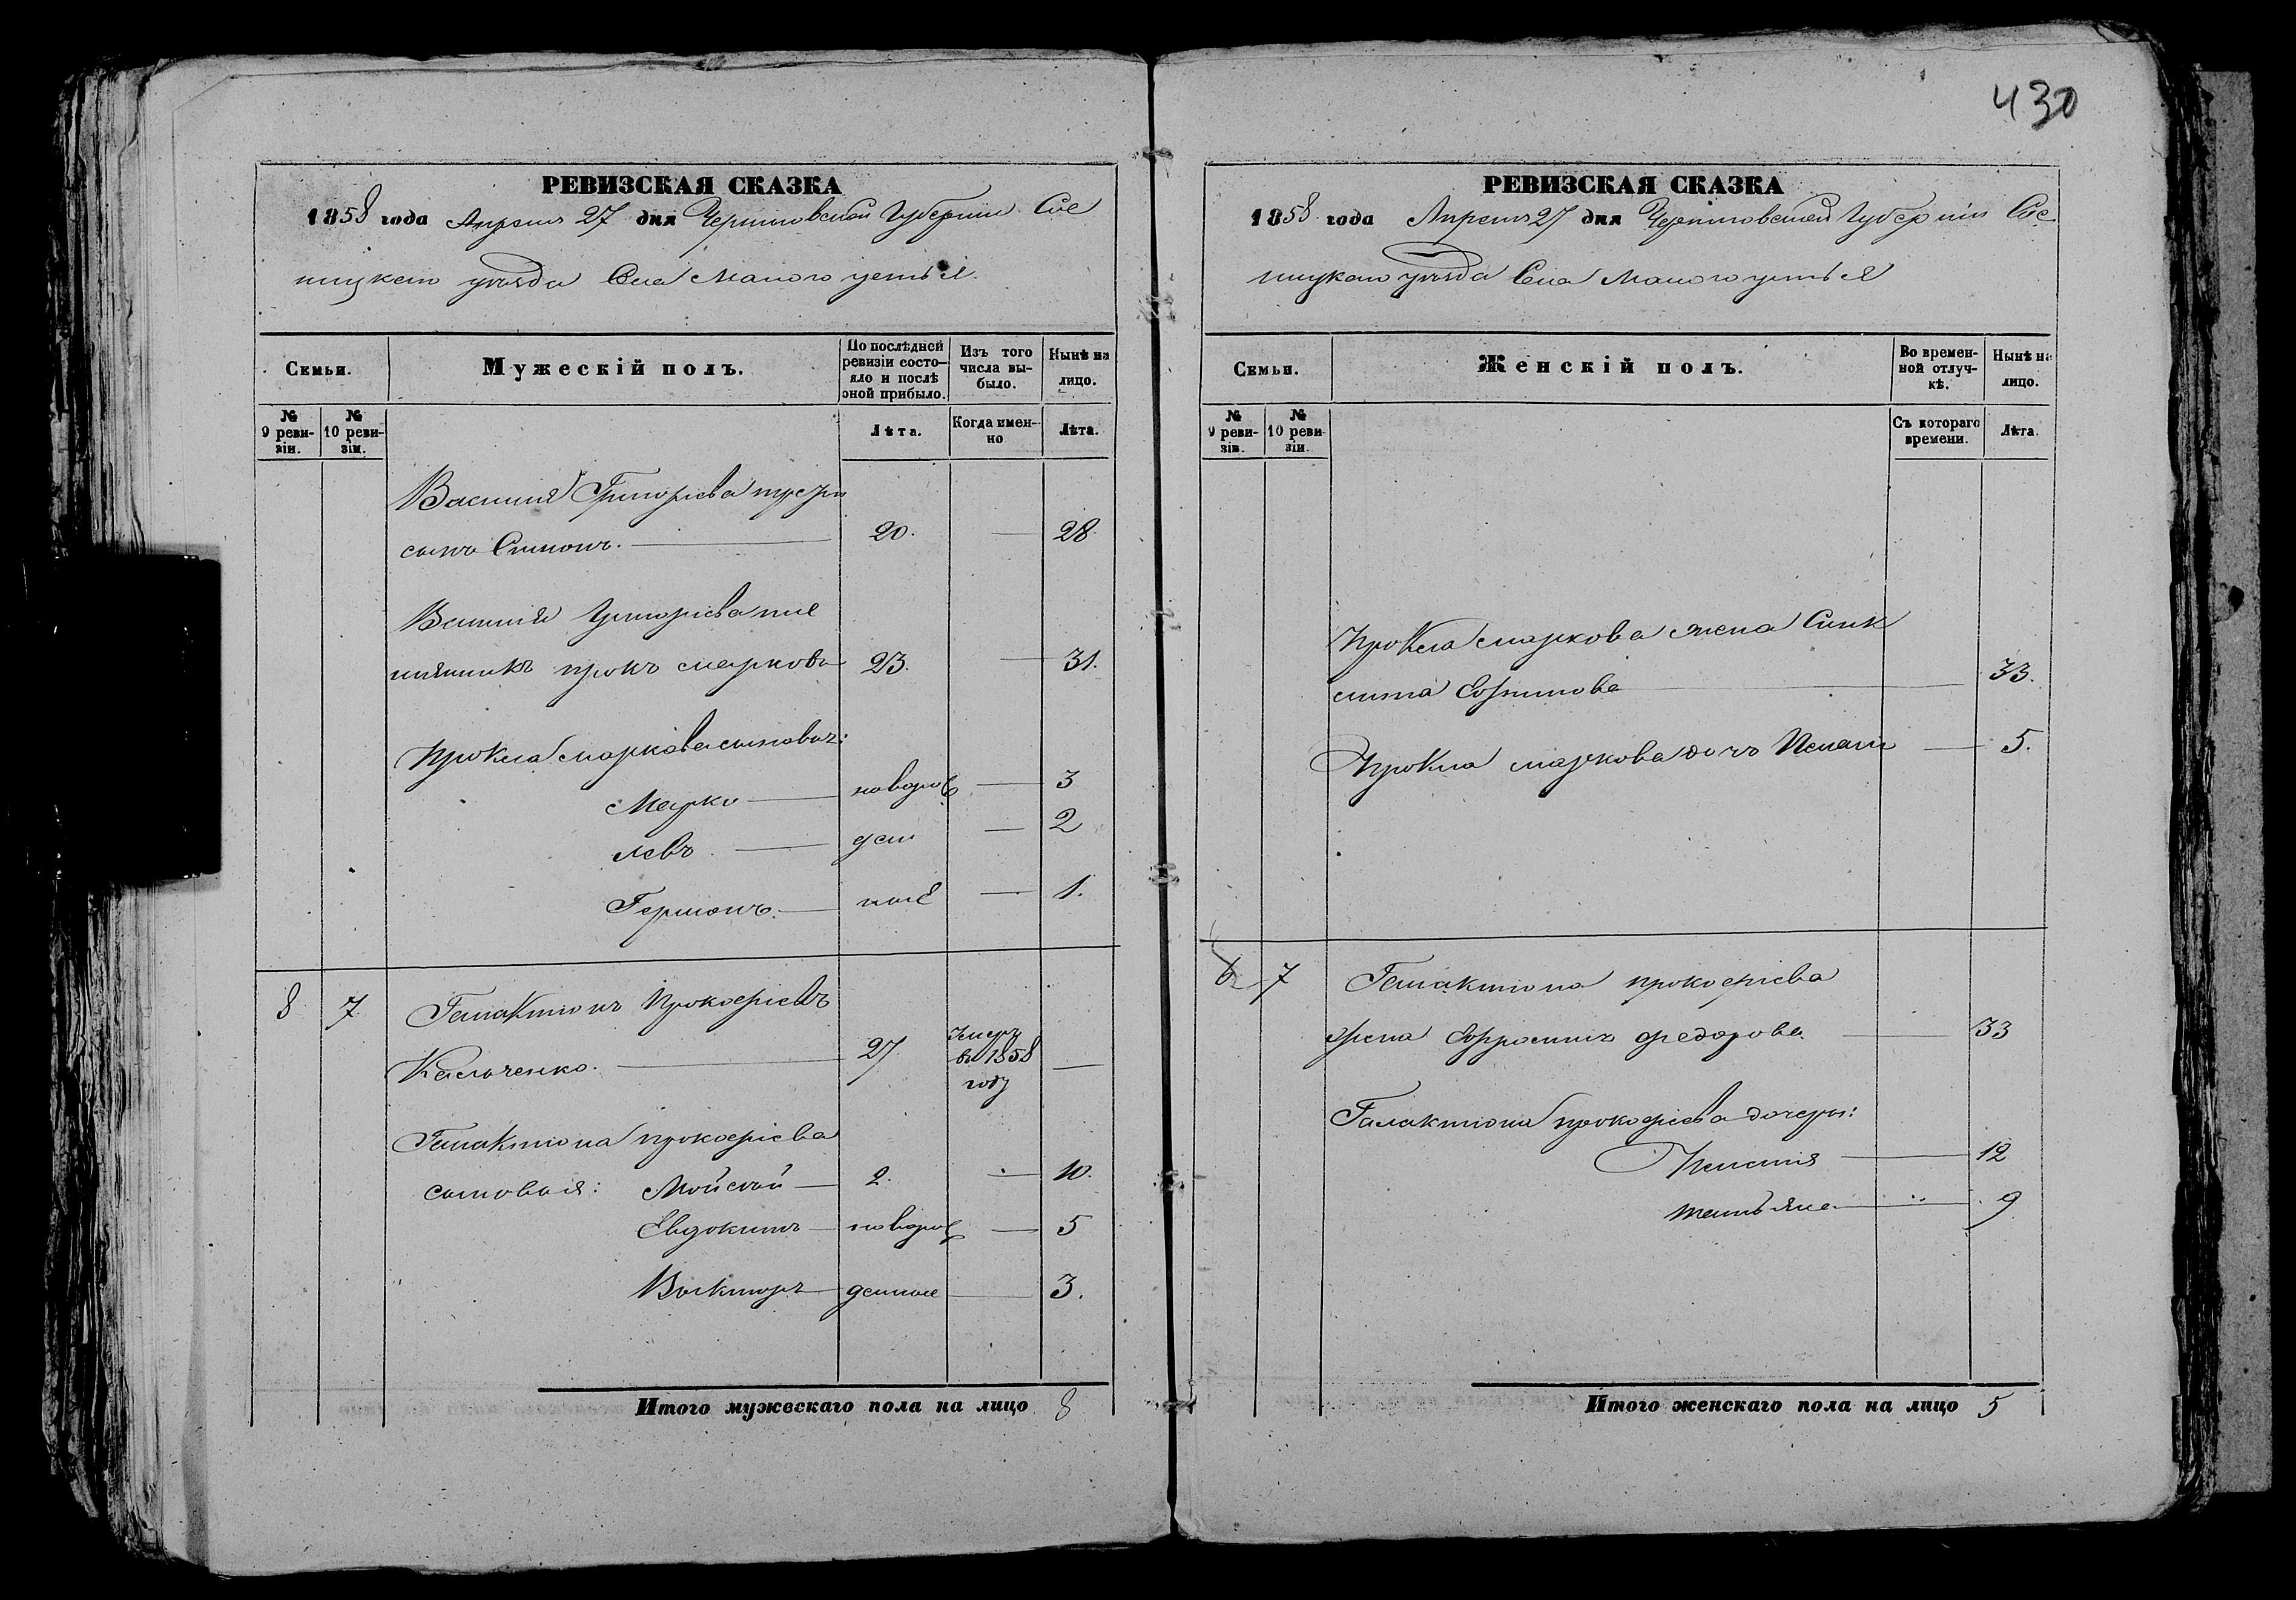 430
РЕВИЗСКАЯ СКАЗКА
1858 года Апреля 27 дня Черниговской Губернии Сос
ницкаго уезда Села Малого устья
Семьи.
Мужескій полъ.
По послѣдней ревизіи состо-
яло и послѣ оной прибыло.
Изъ того числа вы-
было.
Нынѣ на лицо.
№ 9 реви-
зіи.
№ 10 реви-
зіи.
Лѣта.
Когда имен-
но
Лѣта.
Василия Григорiева
сынъ Симонъ. 20. 28.
Василия Григорiева пле
мянникъ прокъ маркова 23. 31.
Прокла маркова сыновья:
Марко новорож 3
левъ ден 2
Германъ ные 1.
8 7 Галактионъ Прокофiевъ
Кальченко. 27 Умеръ
въ 1858
году
Галактиона прокофiева
сыновья: Мойсей 2. 10.
Евдокимъ новорож 5
Викторъ денные 3.
Итого мужескаго пола на лицо 8
РЕВИЗСКАЯ СКАЗКА
1858 года Апреля 27 дня Черниговской Губернiи Сос
ницкаго уезда Села Малого устья
Семьи.
Женскій полъ.
Во времен-
ной отлуч-
кѣ.
Нынѣ на лицо.
№ 9 реви-
зіи.
№ 10 реви-
зіи.
Съ котораго времени.
Лѣта.
Прокла маркова жена Синк
лита 33.
Прокла маркова дочь 5.
7 Галактиона прокофiева
жена Ефросинiя федорова 33
Галактиона прокофiева дочери:
12
татьяна 9
Итого женскаго пола на лицо 5